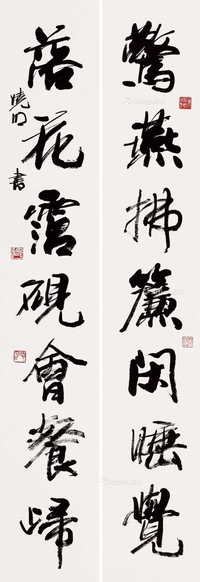 驚燕拂簾閑睡覺
落花霑硯會餐歸
曉明書